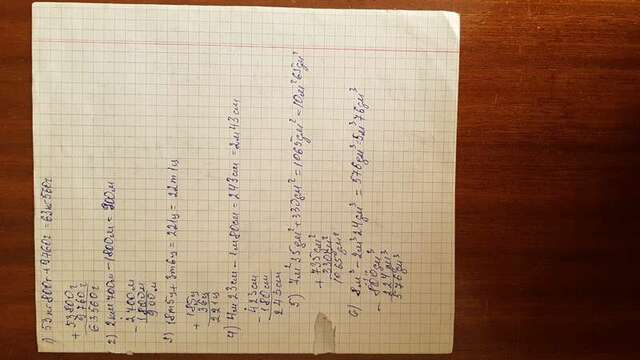 1) 53кг800г + 9760г = 63кг560г
+ 53800г
9760г
63560г
2) 2км700м - 1800м = 900м
- 2700м
1800м
900м
3) 18т5ц + 3т6ц = 221ц = 22т1ц
+ 185ц
36ц
221ц
4) 4м23см - 1м80см = 243см = 2м43см
- 423см
180см
243см
5) 7м²35дм² + 330дм² = 1065дм² = 10м²65дм²
+ 735дм²
330дм²
1065дм²
6) 8м³ - 2м³24дм³ = 576дм³ = 5м³76дм³
- 800дм³
224дм³
576дм³